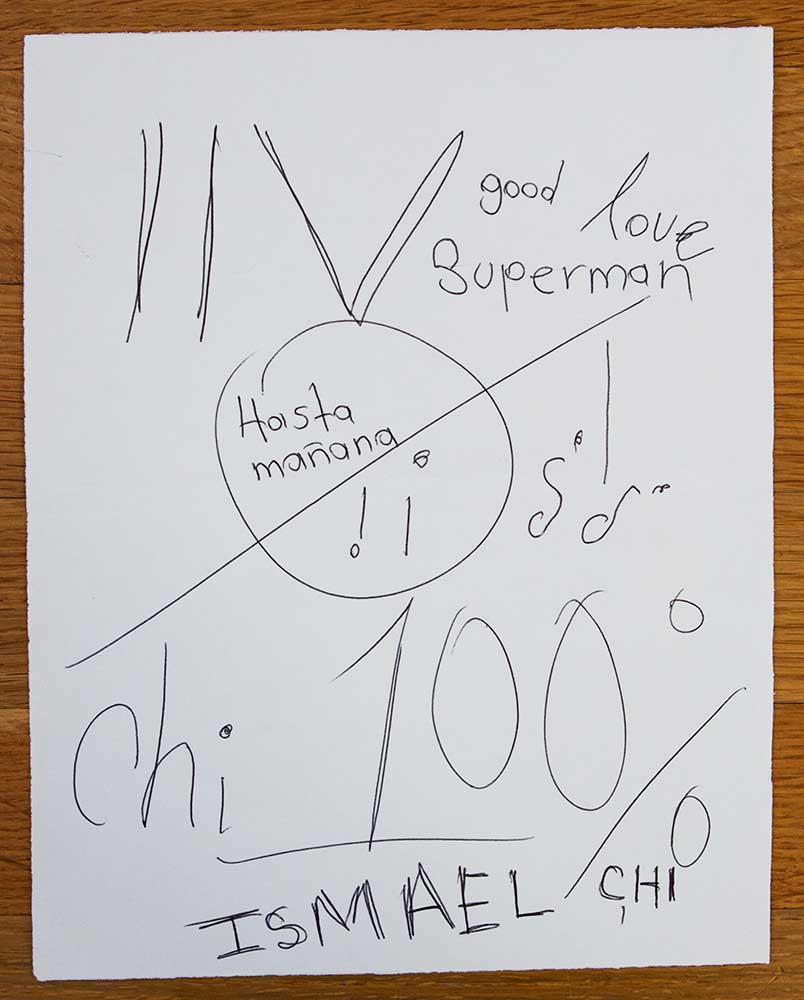 IIV
good love
Superman
Hasta
mañana
!i
chi 100%
ISMAEL CHI